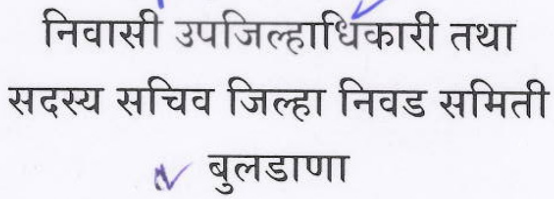 निवासी उपजिल्हाधिकारी तथा
सदस्य सचिव जिल्हा निवड समिती
बुलडाणा